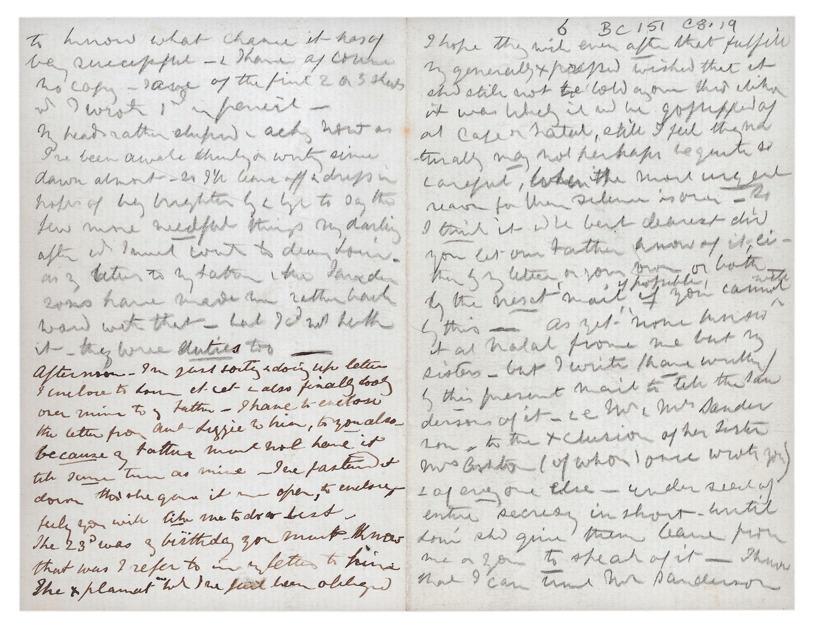 to know what chance it has of
being successful – & I have of course
no copy – save of the first 2 or 3 sheets
I wrote 1st in pencil –
My head's rather stupid & achy now as
I've been awake & writing since
dawn almost – so I'll leave off & dress in
hopes of being brighter by & bye to say the
few more needful things my darling
after wh I must write to dear Louis –
as my letter to my father & the Sander
sons have made me rather back
ward with that – but I cd not help
it – they were duties too —
Afternoon – I'm just sorting & doing up letters
I enclose to Louis & also finally look
over mine to my father – I have to enclose
the letter from Aunt Lizzie to him, to you also
because my father must not have it
the same time as mine – I've fastened it
down tho' she gave it me open, to enclose –
feeling you will like me to do so best –
The 23d was my birthday you must know
that was I refer to in my letter to him
The explanatn wh I've just been obliged
6 BC 151 C8.19
I hope they will even after that fulfill
my generally expressed wished that it
shd still not be told again tho' etihu
it was likely it wd be gossipped of
at Cape or Natal, still I feel they na
-turally may not perhaps be quite so
careful, when the most urgent
reason for their silence is over – So
I think it wd be best dearest did
you let our Father know of it, ei –
ther by my letter or your own or both –
by the next mail if possible, if you cannot
by this — As yet none knows
it at Natal from me but my
sisters – but I write (have written)
by this present mail to tell the San
dersons of it – i.e Mr & Mrs Sander
son, to the exclusion of her sister
Mrs (of whom I once wrote you)
& of everyone else – under seal of
entire secresy in short – until
Louis shd give them leave from
me or you to speak of it — I know
that I can trust Mr Sanderson